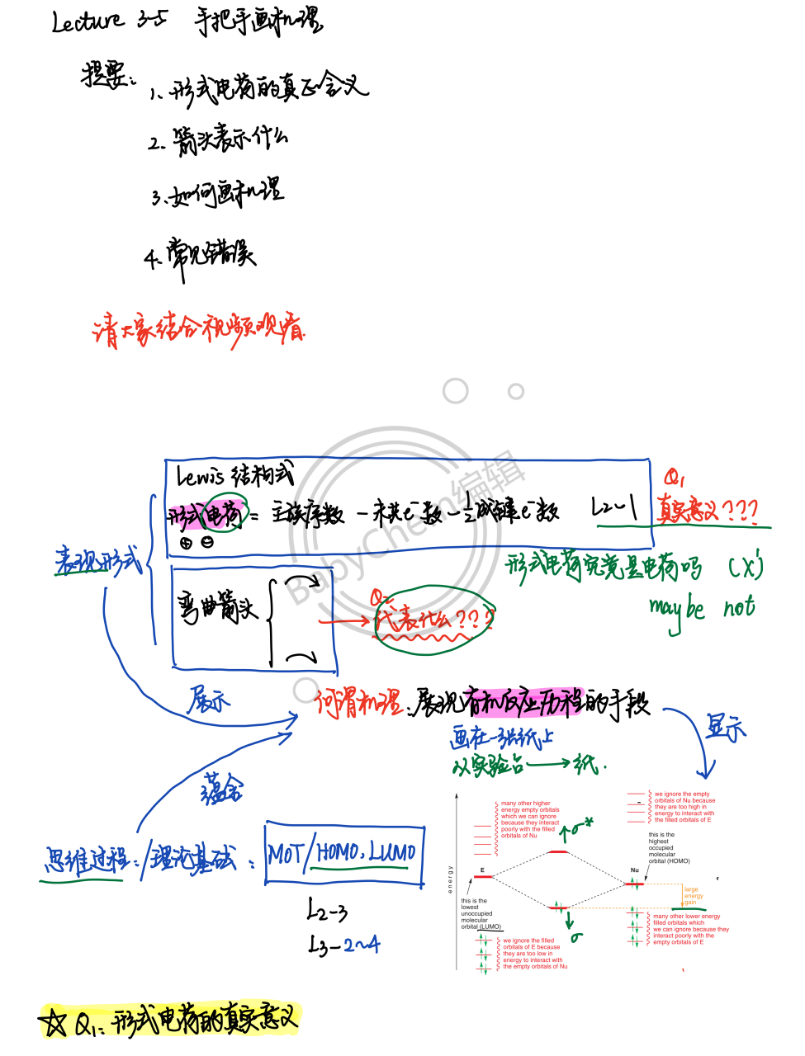 Lecture 3-5 手把手画机理
提要:
1、形式电荷的真正含义
2、箭头表示什么
3、如何画机理
4、常见错误
请大家结合视频观看.
BabyChem编辑
Lewis 结构式
形式电荷 = 主族序数 - 未共e⁻数 - 1/2成键e⁻数 L2-1
⊕ ⊖
Q1
真实意义???
表现形式
形式电荷究竟是电荷吗 (X)
maybe not
弯曲箭头
Q2
代表什么???
展示
何谓机理:展现有机反应历程的手段
画在一张纸上
从实验台→纸.
显示
蕴含
思维过程:/理论基础:
MOT/HOMO、LUMO
L2-3
L3-2~4
energy
many other higher
energy empty orbitals
which we can ignore
because they interact
poorly with the filled
orbitals of Nu
σ*
we ignore the empty
orbitals of Nu because
they are too high in
energy to interact with
the filled orbitals of E
this is the
highest
occupied
molecular
orbital (HOMO)
E
Nu
large
energy
gain
this is the
lowest
unoccupied
molecular
orbital (LUMO)
σ
many other lower energy
filled orbitals which
we can ignore because they
interact poorly with the
empty orbitals of E
we ignore the filled
orbitals of E because
they are too low in
energy to interact with
the empty orbitals of Nu
☆ Q1:形式电荷的真实意义